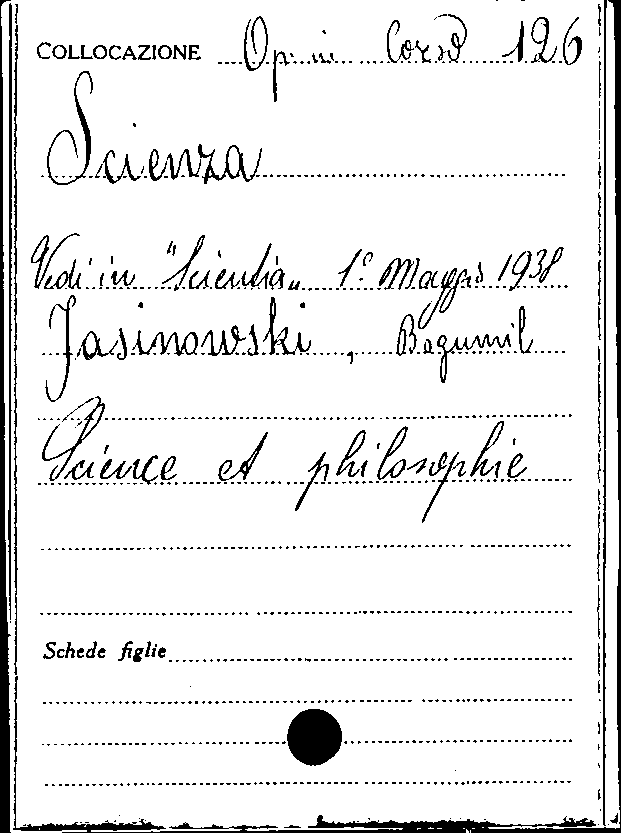 COLLOCAZIONE Op. in Corso 126
Scienza
Vedi in "Scientia„ 1° Maggio 1938
Jasinowski, Bogumil
Science et philosophie
Schede figlie